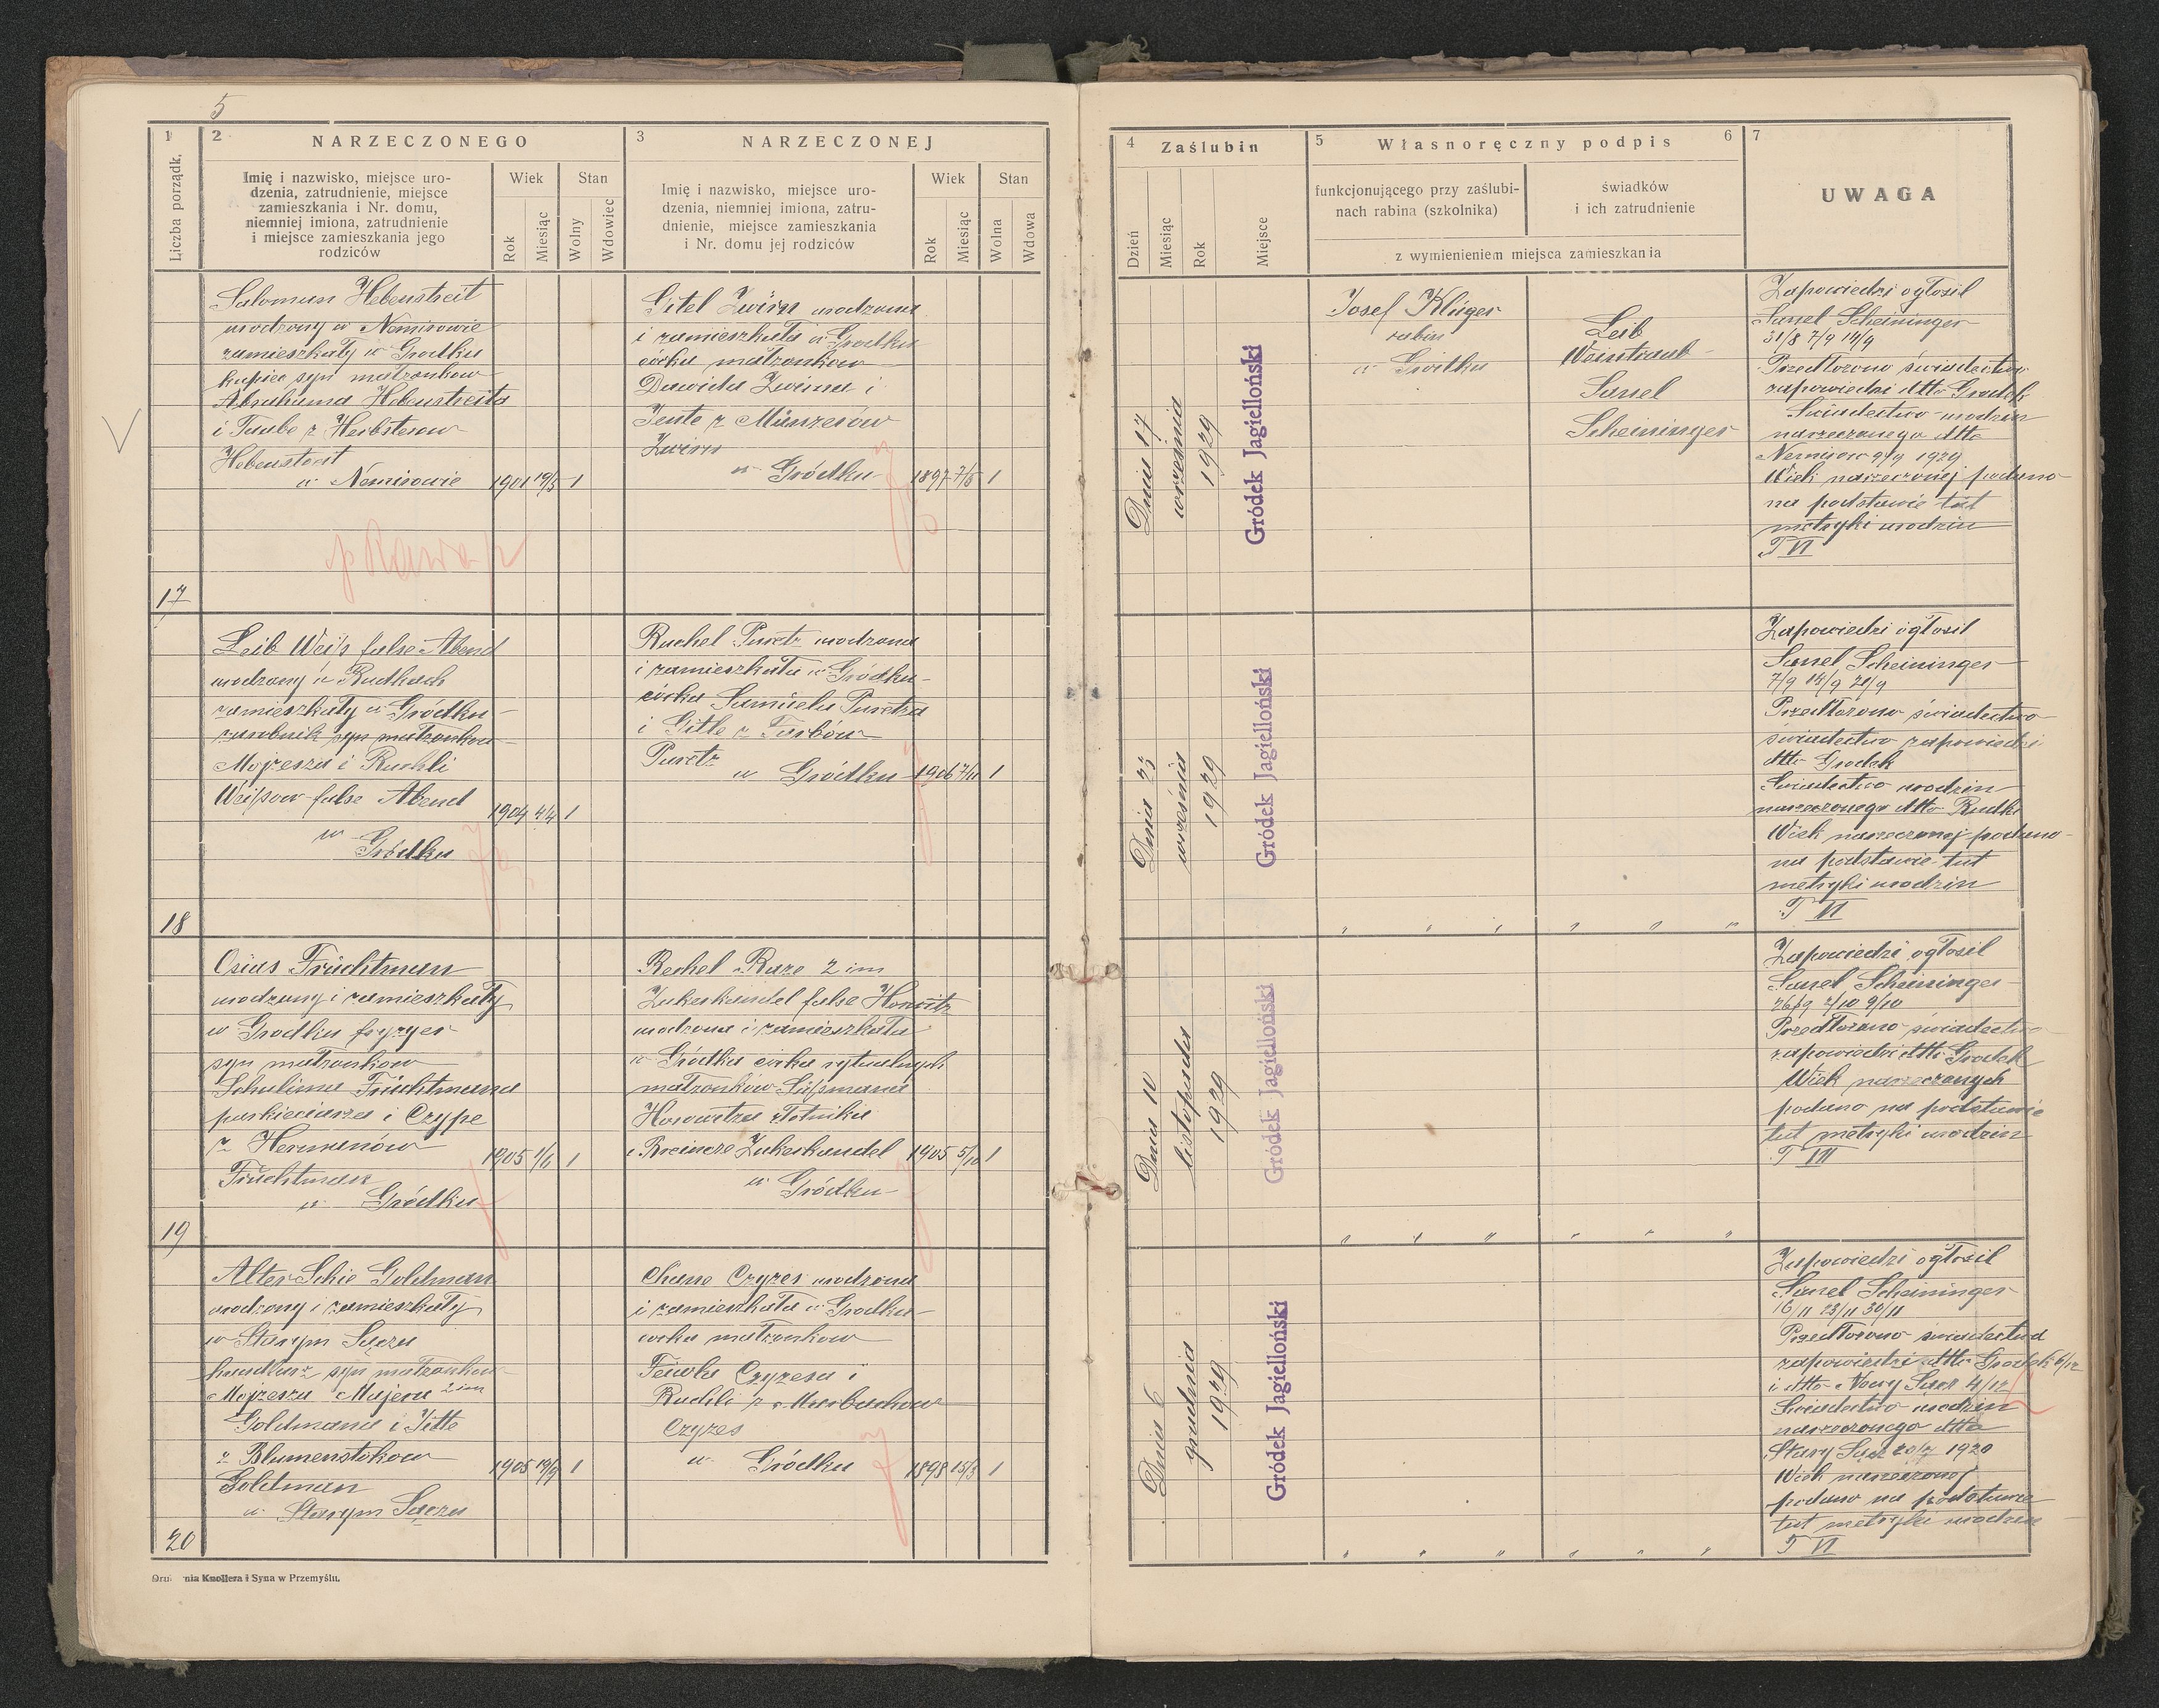 5
1
Liczba porządk.
2
NARZECZONEGO
Imię i nazwisko, miejsce uro-
dzenia, zatrudnienie, miejsce
zamieszkania i Nr. domu,
niemniej imiona, zatrudnienie
i miejsce zamieszkania jego
rodziców
Wiek
Rok
Miesiąc
Stan
Wolny
Wdowiec
3
NARZECZONEJ
Imię i nazwisko, miejsce uro-
dzenia, niemniej imiona, zatru-
dnienie, miejsce zamieszkania
i Nr. domu jej rodziców
Wiek
Rok
Miesiąc
Stan
Wolna
Wdowa
4
Zaślubin
Dzień
Miesiąc
Rok
Miejsce
5
Własnoręczny podpis
6
funkcjonującego przy zaślubi-
nach rabina (szkolnika)
świadków
i ich zatrudnienie
z wymienieniem miejsca zamieszkania
7
UWAGA
17
Salomon Hebenstreit
urodzony w Nemirowie
zamieszkały w Grodku
kupiec syn małżonkow
Abrahama Hebenstreita
i Taube z Herbsterow
Hebenstreit
w Nemirowie 1901 19/3 1
Gitel Zwirn urodzona
i zamieszkała w Grodku
córka małżonkow
Dawida Zwirna i
Jente z Münzerów
Zwirn
w Gródku 1897 7/5 1
Dnia 17
września
1929
Gródek Jagielloński
Josef Klüger
rabin
w Gródku
Leib
Weinstraub
Sanel
Scheininger
Zapowiedzi ogłosił
Sanel Scheininger
31/8 7/9 14/9
Przedłożono świadectwo
zapowiedzi dtto Gradek
Swiadectwo urodzin
narzeczonego dtto
Nemirow 9/9 1929
Wiek narzeczonej podano
na podstawie tut
metryki urodzin
T VI
18
Leib Weiss false Abend
urodzony w Rudkach
zamieszkały w Gródku
zarobnik syn małżonkow
Mojzesza i Ruchli
Weissow false Abend
1904 4/4 1
w
Gródku
Ruchel Puretz urodzona
i zamieszkała w Gródku
córka Samuela Puretza
i Gitle z Farbów
Puretz
w Gródku 1906 7/11 1
Dnia 23
września
1929
Gródek Jagielloński
" " " " " "
Zapowiedzi ogłosił
Sanel Scheininger
7/9 14/9 21/9
Przedłożono świadectwo
świadectwo zapowiedzi
dtto Gradek
Swiadectwo urodzin
narzeczonego dtto Rudki
Wiek narzeczonej podano
na podstawie tut
metryki urodzin
T VI
19
Osias Früchtman
urodzony i zamieszkały
w Grodku fryzyer
syn małżonkow
Schulima Früchtmana
parkieciarza i Czype
z Hermanów
Früchtman
1905 1/6 1
w Gródku
Rechel Roze 2 im
Zukerkandel false Horowitz
urodzona i zamieszkała
w Gródku córka rytualnych
małżonków Süssmana
Horowitza rolnika
i Breincze Zukerkandel 1905 5/10 1
w Gródku
Dnia 10
listopada
1929
Gródek Jagielloński
" " " " " "
Zapowiedzi ogłosił
Sanel Scheininger
26/9 2/10 9/10
Przedłożono świadectwo
zapowiedzi dtto Gradek
Wiek narzeczonych
podano na podstawie
tut metryki urodzin
T VII
20
Alter Schie Goldman
urodzony i zamieszkały
w Starym Sączu
handlarz syn małżonkow
Mojzesza Majera 2 im
Goldmana i Jitte
z Blumenstokow
Goldman
1905 19/9 1
w Starym Sączu
Chane Czyzes urodzona
i zamieszkała w Grodku
corka małżonkow
Feiwla Czyzesa i
Ruchli z Murbachow
Czyzes
w Gródku 1898 15/3 1
Dnia 6
grudnia
1929
Gródek Jagielloński
" " " " " "
Zapowiedzi ogłosił
Sanel Scheininger
16/11 23/11 30/11
Przedłożono świadectwa
zapowiedzi dtto Gradek 6/12
i dtto Nowy Sącz 4/12
Swiadectwo urodzin
narzeczonego dtto
Stary Sącz 20/7 1920
Wiek narzeczonej
podano na podstawie
tut metryki urodzin
T VI
Drukarnia Knollera i Syna w Przemyślu.